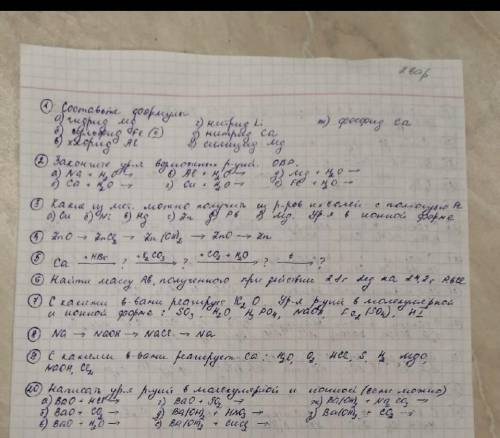 вар
① Составьте формулы
а) гидрид Mg г) нитрид Li ж) фосфид Ca
б) сульфид Fe (II) д) нитрид Ca
в) хлорид Al е) силицид Mg
② Закончите ур-я возможных р-ций. ОВР.
а) Na + H₂O → в) Al + H₂O → д) Mg + H₂O →
б) Ca + H₂O → г) Cu + H₂O → е) Fe + H₂O →
③ Какие из мет. можно получить из р-ров их солей с помощью
а) Cu б) Ni в) Hg г) Zn д) Pb е) Mg. Ур-я в ионной форме
④ ZnO → ZnCl₂ → Zn(OH)₂ → ZnO → Zn
⑤ Ca +HBr → ? +K₂CO₃ → ? +CO₂ + H₂O → ? t → ?
⑥ Найти массу Pb, полученного при действии Mg на PbCl₂
⑦ С какими в-вами реагирует K₂O. Ур-я р-ций в молекулярной
и ионной форме: SO₃, H₂O, H₃PO₄, NaOH, HI
⑧ Na → NaOH → NaCl → Na
⑨ С какими в-вами реагирует Ca: H₂O, O₂, HCl, S, H₂, MgO,
NaOH, Cl₂
⑩ Написать ур-я р-ций в молекулярной и ионной (если можно)
а) BaO + HCl → г) BaO + SO₃ → ж) Ba(OH)₂ + Na₂CO₃
б) BaO + CO₂ → д) Ba(OH)₂ + HNO₃ → з) Ba(OH)₂ + CO₂ →
в) BaO + H₂O → е) Ba(OH)₂ + CuCl₂ →